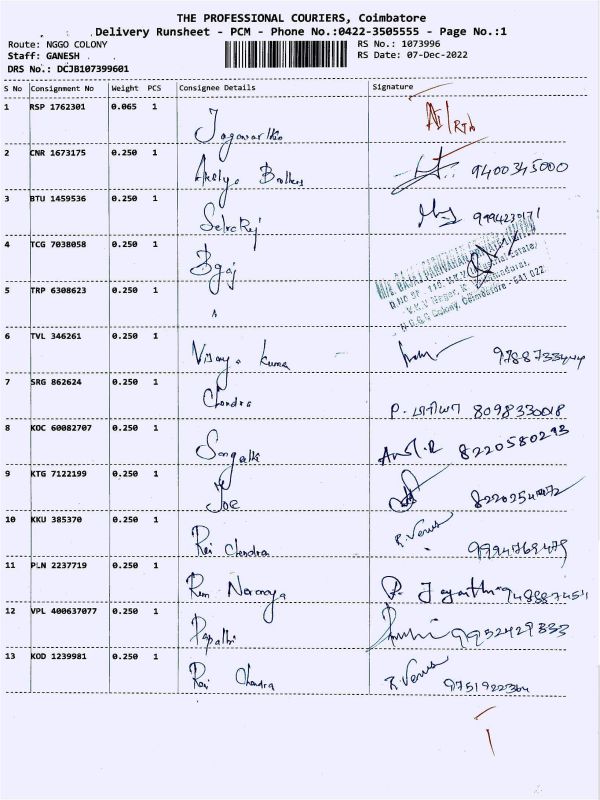 THE PROFESSIONAL COURIERS, Coimbatore
Delivery Runsheet - PCM - Phone No.:0422-3505555 - Page No.:1
Route: NGGO COLONY RS No.: 1073996
Staff: GANESH RS Date: 07-Dec-2022
DRS No.: DCJB107399601
S No Consignment No Weight PCS Consignee Details Signature
1 RSP 1762301 0.065 1
2 CNR 1673175 0.250 1 Brothers 9400345000
3 BTU 1459536 0.250 1 SelvaRaj 9994230171
4 TCG 7038058 0.250 1 Bgaj
5 TRP 6308623 0.250 1 "
NGGO Colony, Coimbatore - 641 022
6 TVL 346261 0.250 1 Vijaya Kuma
7 SRG 862624 0.250 1 Chandra P. 8098330018
8 KOC 60082707 0.250 1 Sangeethi 8220580293
9 KTG 7122199 0.250 1 Joe
10 KKU 385370 0.250 1 Rai Chandra R. Venus 9994769479
11 PLN 2237719 0.250 1 Ram Naranaya P. Jayanthi
12 VPL 400637077 0.250 1 Papathi 9952429333
13 KOD 1239981 0.250 1 Rai Chandra R. Venus 9751922364